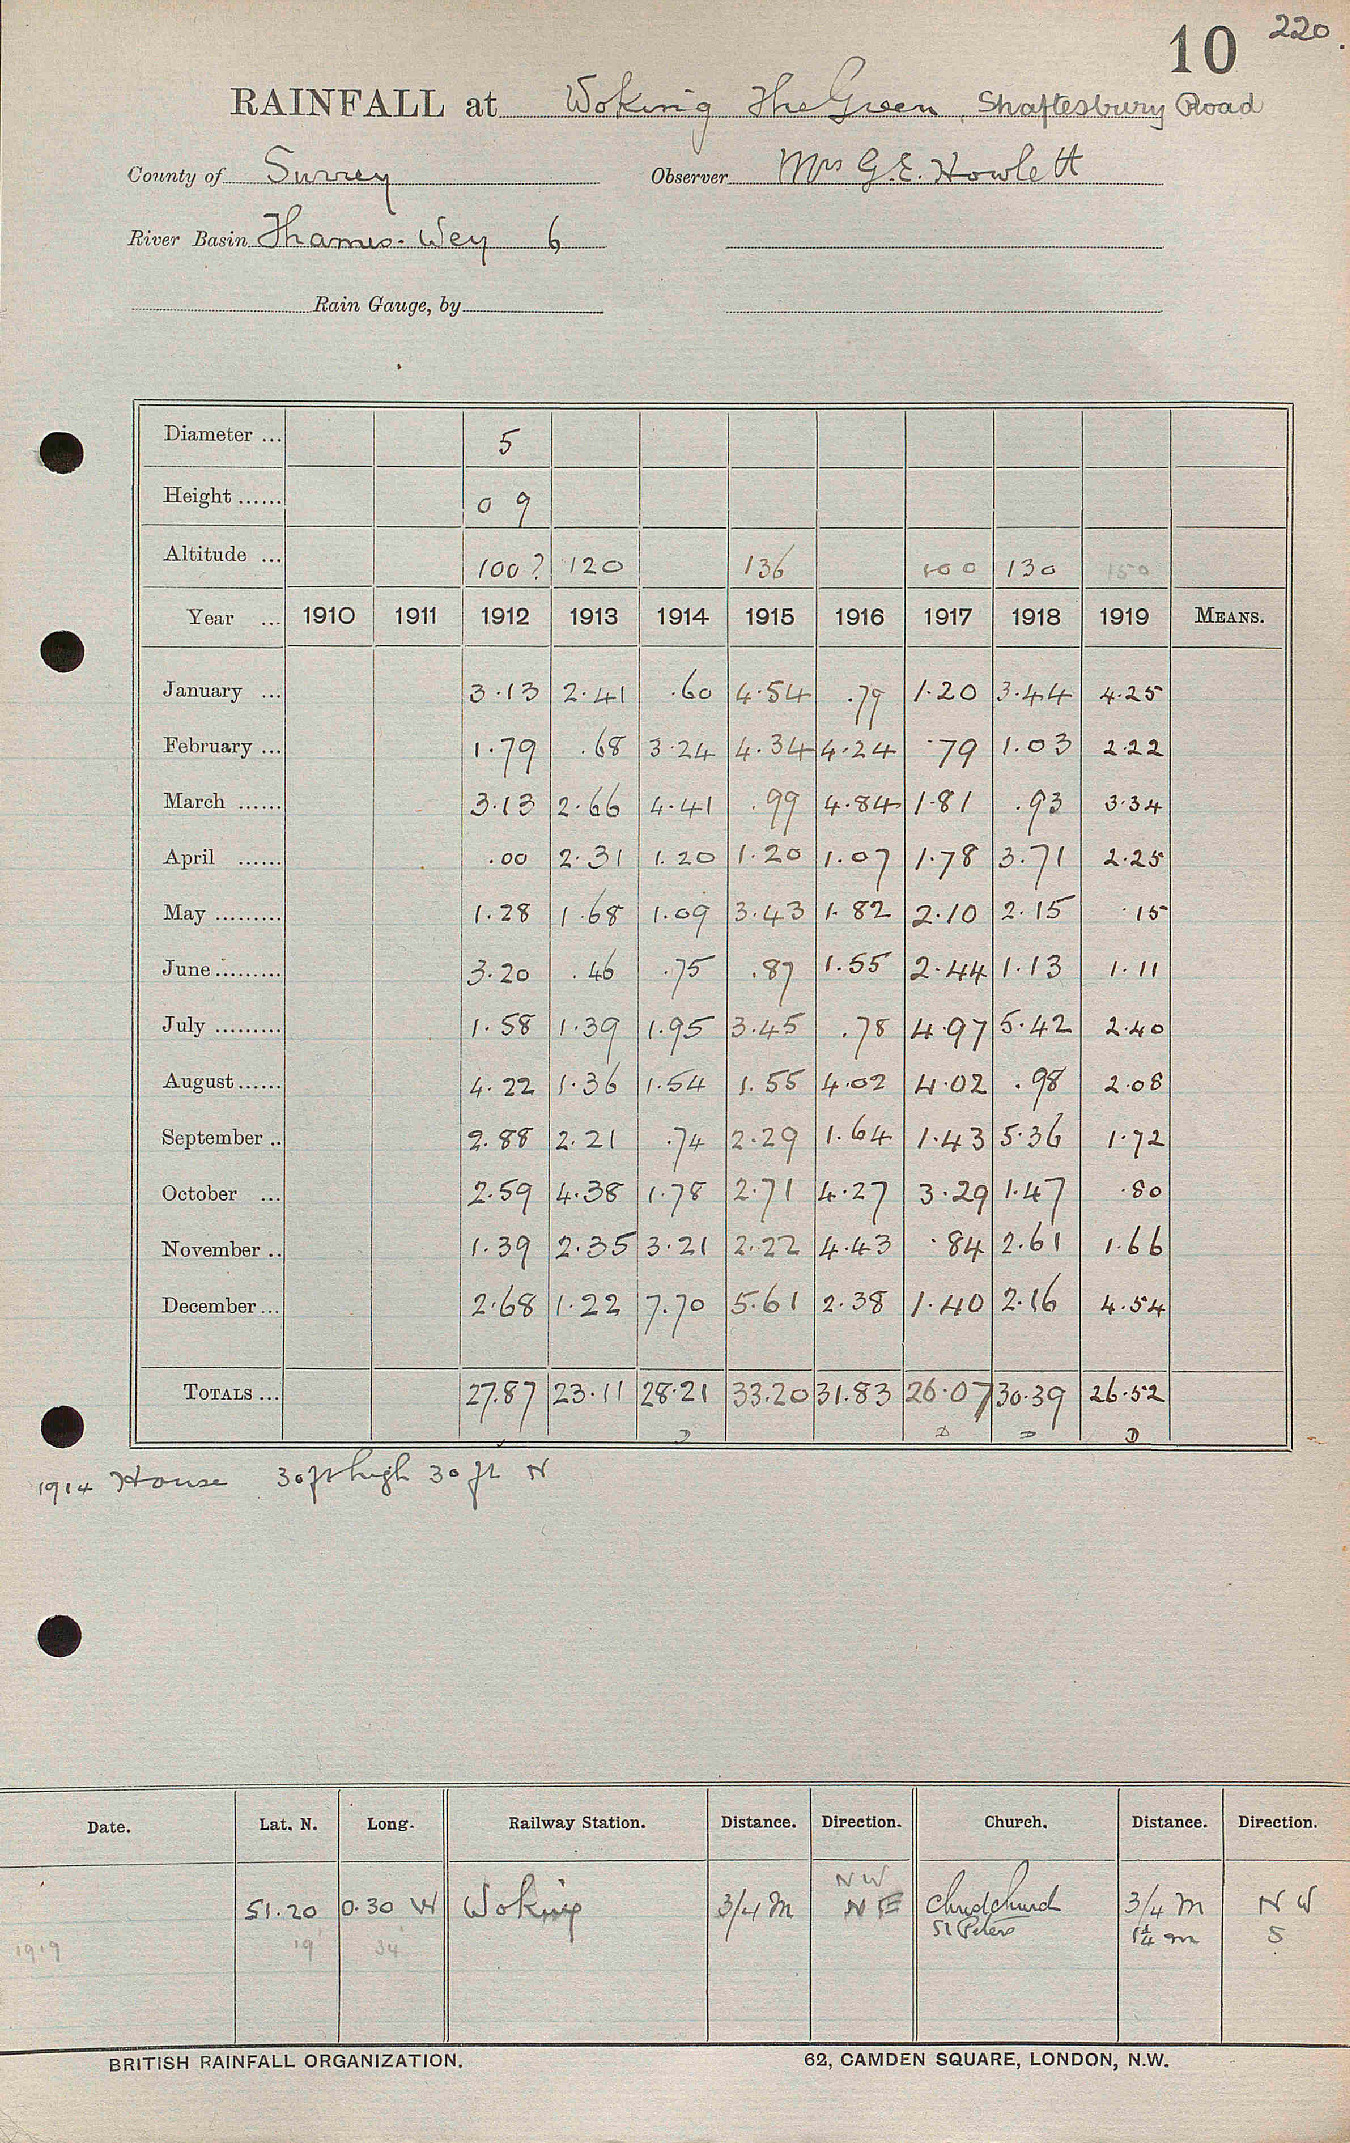 10 220.
RAINFALL at Woking The Green, Shaftesbury Road
County of Surrey Observer Mrs G.E. Howlett
River Basin Thames-Wey 6
Rain Gauge, by
Diameter ... 5
Height ...... 0 9
Altitude ... 100? 120 136 100 130 150
Year ... 1910 1911 1912 1913 1914 1915 1916 1917 1918 1919 MEANS.
January ... 3.13 2.41 .60 4.54 .79 1.20 3.44 4.25
February ... 1.79 .68 3.24 4.34 4.24 .79 1.03 2.22
March ...... 3.13 2.66 4.41 .99 4.84 1.81 .93 3.34
April ...... .00 2.31 1.20 1.20 1.07 1.78 3.71 2.25
May ......... 1.28 1.68 1.09 3.43 1.82 2.10 2.15 .15
June ......... 3.20 .46 .75 .87 1.55 2.44 1.13 1.11
July ......... 1.58 1.39 1.95 3.45 .78 4.97 5.42 2.40
August ...... 4.22 1.36 1.54 1.55 4.02 4.02 .98 2.08
September .. 2.88 2.21 .74 2.29 1.64 1.43 5.36 1.72
October ... 2.59 4.38 1.78 2.71 4.27 3.29 1.47 .80
November .. 1.39 2.35 3.21 2.22 4.43 .84 2.61 1.66
December ... 2.68 1.22 7.70 5.61 2.38 1.40 2.16 4.54
TOTALS ... 27.87 23.11 28.21 33.20 31.83 26.07 30.39 26.52
1914 House 30ft high 30 ft N
Date. Lat. N. Long. Railway Station. Distance. Direction. Church. Distance. Direction.
NW
51.20 0.30 W Woking 3/4 m NE Christchurch 3/4 m NW
1919 19 34 St Peters 1 1/4 m S
BRITISH RAINFALL ORGANIZATION. 62, CAMDEN SQUARE, LONDON, N.W.